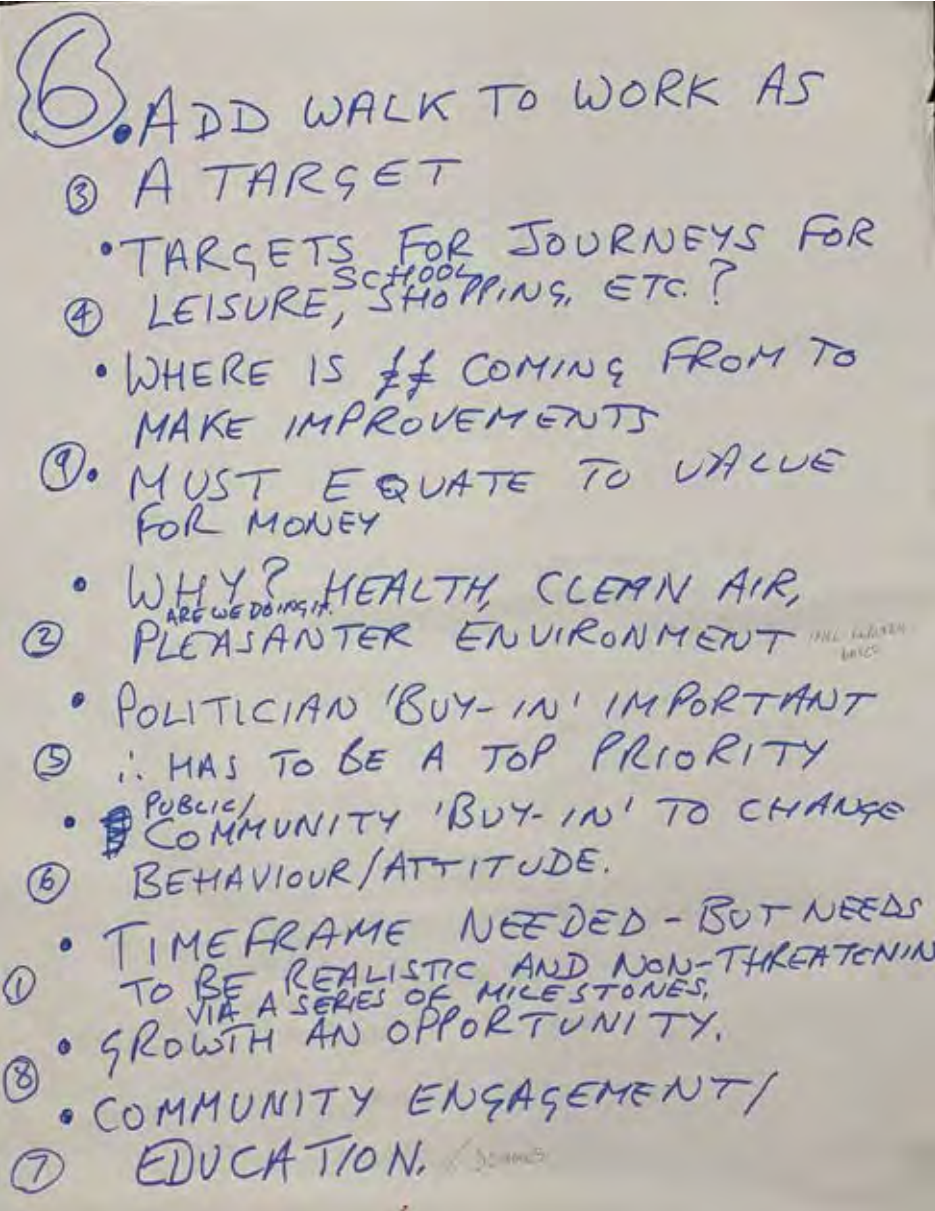 6
• ADD WALK TO WORK AS
③ A TARGET
• TARGETS FOR JOURNEYS FOR
SCHOOL
④ LEISURE, SHOPPING, ETC.?
• WHERE IS ££ COMING FROM TO
MAKE IMPROVEMENTS
⑨ • MUST EQUATE TO VALUE
FOR MONEY
• WHY? HEALTH, CLEAN AIR,
ARE WE DOING IT.
② PLEASANTER ENVIRONMENT
• POLITICIAN 'BUY-IN' IMPORTANT
⑤ ∴ HAS TO BE A TOP PRIORITY
PUBLIC/
• COMMUNITY 'BUY-IN' TO CHANGE
⑥ BEHAVIOUR/ATTITUDE.
• TIMEFRAME NEEDED - BUT NEEDS
① TO BE REALISTIC AND NON-THREATENIN
VIA A SERIES OF MILESTONES.
• GROWTH AN OPPORTUNITY.
⑧
• COMMUNITY ENGAGEMENT/
⑦ EDUCATION.